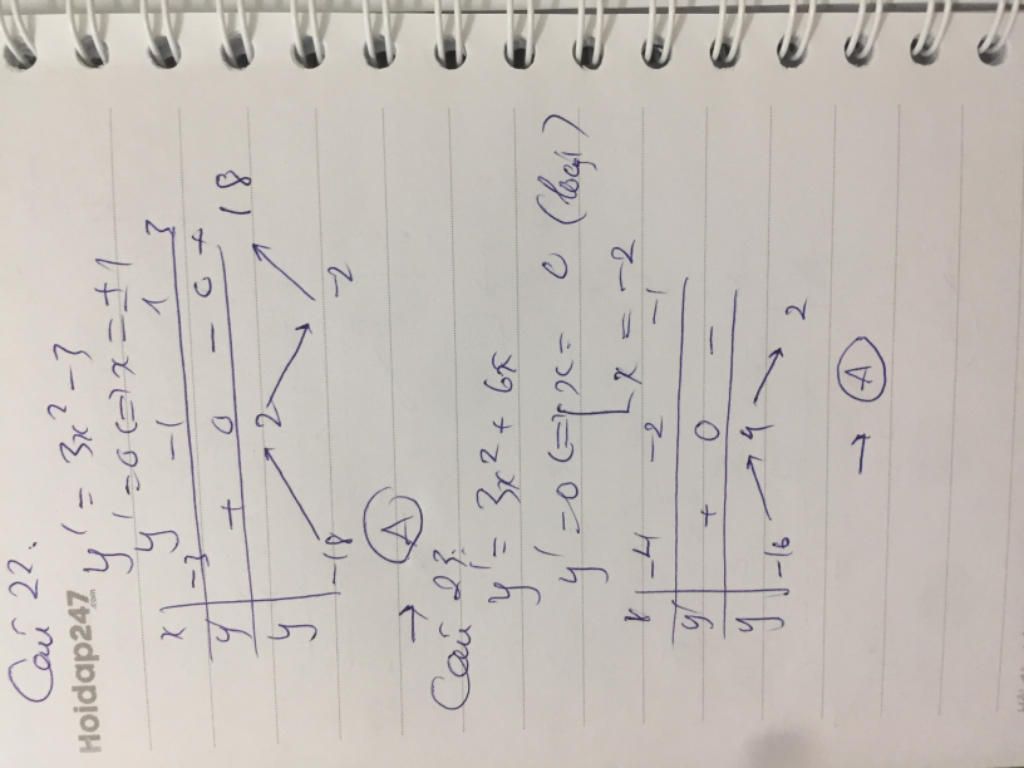 Câu 22.
Hoidap247.com
y' = 3x² - 3
y' = 0 <=> x = ±1
x -3 -1 1 3
y' + 0 - 0 +
y -18 2 -2 18
→ A
Câu 23.
y' = 3x² + 6x
y' = 0 <=> x = 0 (loại)
x = -2
x -4 -2 -1
y' + 0 -
y -16 4 2
→ A